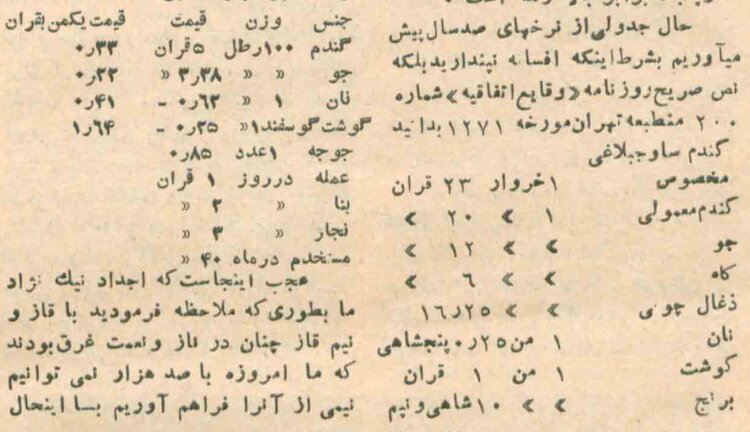 حال جدولی از نرخهای صدسال پیش
میآوریم بشرط اینکه افسانه نپندارید بلکه
نص صریح روزنامه «وقایع اتفاقیه» شماره
۲۰۰ منطبعه تهران مورخه ۱۲۷۱ بدانید
گندم ساوجبلاغی
مخصوص ۱ خروار ۲۳ قران
گندم معمولی ۱ » ۲۰ »
جو » » ۱۲ »
کاه » » ۶ »
ذغال چوبی » » ۱۶٫۲۵
نان ۱ من ۰٫۲۵ پنجشاهی
گوشت ۱ من ۱ قران
برنج » » ۱۰ شاهی و نیم
جنس وزن قیمت قیمت یکمن بقران
گندم ۱۰۰ رطل ۵ قران ۰٫۳۳
جو » » ۳٫۳۸ » ۰٫۲۲
نان ۱ » ۰٫۶۲ – ۰٫۴۱
گوشت گوسفند ۱ » ۰٫۲۵ – ۱٫۶۴
جوجه ۱ عدد ۰٫۸۵
عمله در روز ۱ قران
بنا » ۲ »
نجار » ۳ »
مستخدم در ماه ۴۰ »
عجب اینجاست که اجداد نیک نژاد
ما بطوری که ملاحظه فرمودید با قاز و
نیم قاز چنان در ناز و نعمت غرق بودند
که ما امروزه با صد هزار نمی توانیم
نیمی از آنرا فراهم آوریم بسا اینحال